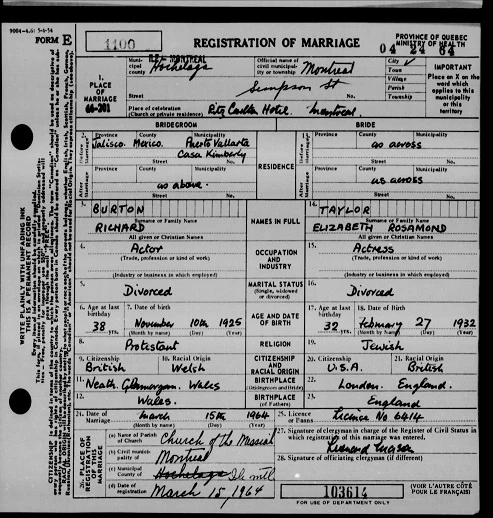 9004-4.6: 5-6-54
FORM E
1100
REGISTRATION OF MARRIAGE
PROVINCE OF QUEBEC
MINISTRY OF HEALTH
04 24 64
1.
PLACE OF
MARRIAGE
66-201
Municipal county
Hochelaga
Official name of civil municipality or township
Montreal
City
Town
Village
Parish
Township
IMPORTANT
Place an X on the
word which
applies to this
municipality or
this
territory
Street
Simpson St
No.
Place of celebration
(Church or private residence)
Ritz Carlton Hotel. Montreal
BRIDEGROOM
BRIDE
Before Marriage
Province County Municipality
Jalisco. Mexico. Puerto Vallarta
Casa Kimberly
Street No.
RESIDENCE
Province County Municipality
as across
Street No.
After Marriage
Province County Municipality
as above.
Street No.
Province County Municipality
as across
Street No.
3.
BURTON
Surname or Family Name
RICHARD
All given or Christian Names
NAMES IN FULL
14.
TAYLOR
Surname or Family Name
ELIZABETH ROSAMOND
All given or Christian Names
4.
Actor
(Trade, profession or kind of work)
(Industry or business in which employed)
OCCUPATION
AND
INDUSTRY
15.
Actress
(Trade, profession or kind of work)
(Industry or business in which employed)
5.
Divorced
MARITAL STATUS
(Single, widowed
or divorced)
16.
Divorced
6. Age at last birthday
38 yrs.
7. Date of birth
November 10th 1925
(Month by name) (Day) (Year)
AGE AND DATE
OF BIRTH
17. Age at last birthday
32 yrs.
18. Date of Birth
February 27 1932
(Month by name) (Day) (Year)
8.
Protestant
RELIGION
19.
Jewish
9. Citizenship
British
10. Racial Origin
Welsh
CITIZENSHIP
AND
RACIAL ORIGIN
20. Citizenship
U.S.A.
21. Racial Origin
British
11.
Neath. Glamorgan. Wales
BIRTHPLACE
(Bridegroom and Bride)
22.
London. England.
12.
Wales.
BIRTHPLACE
(of Fathers)
23.
England
24. Date of Marriage
March 15th 1964
(Month by name) (Day) (Year)
25. Licence
or Banns
Licence No 6414
26. PLACE OF REGISTRATION OF THIS MARRIAGE
(a) Name of Parish
of Church
Church of the Messiah
(b) Civil municipality of
Montreal
(c) Municipal
County of
Hochelaga
(d) Date of
registration
March 15, 1964
27. Signature of clergyman in charge of the Register of Civil Status in
which registration of this marriage was entered.
Leonard Mason
28. Signature of officiating clergyman (if different)
103614
FOR USE OF DEPARTMENT ONLY
(VOIR L'AUTRE CÔTÉ
POUR LE FRANÇAIS)
WRITE PLAINLY WITH UNFADING INK
THIS IS A PERMANENT RECORD